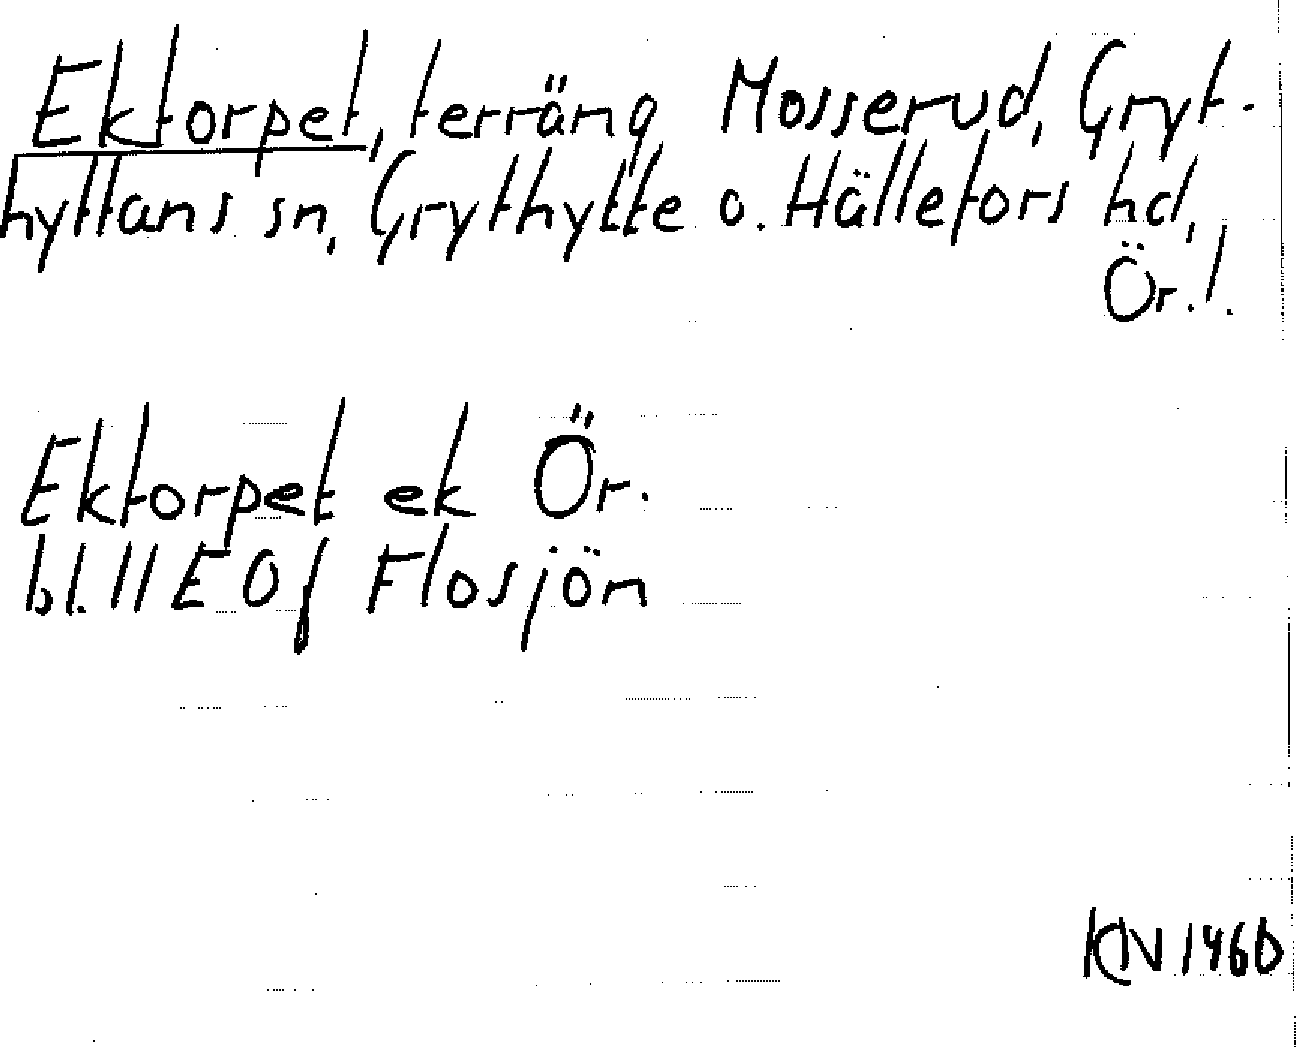 Ektorpet, terräng Mosserud, Gryt-
hyttans sn, Grythytte o. Hällefors hd,
Ör.l.
Ektorpet ek Ör.
bl. 11 E 0f Flosjön
KN 1960